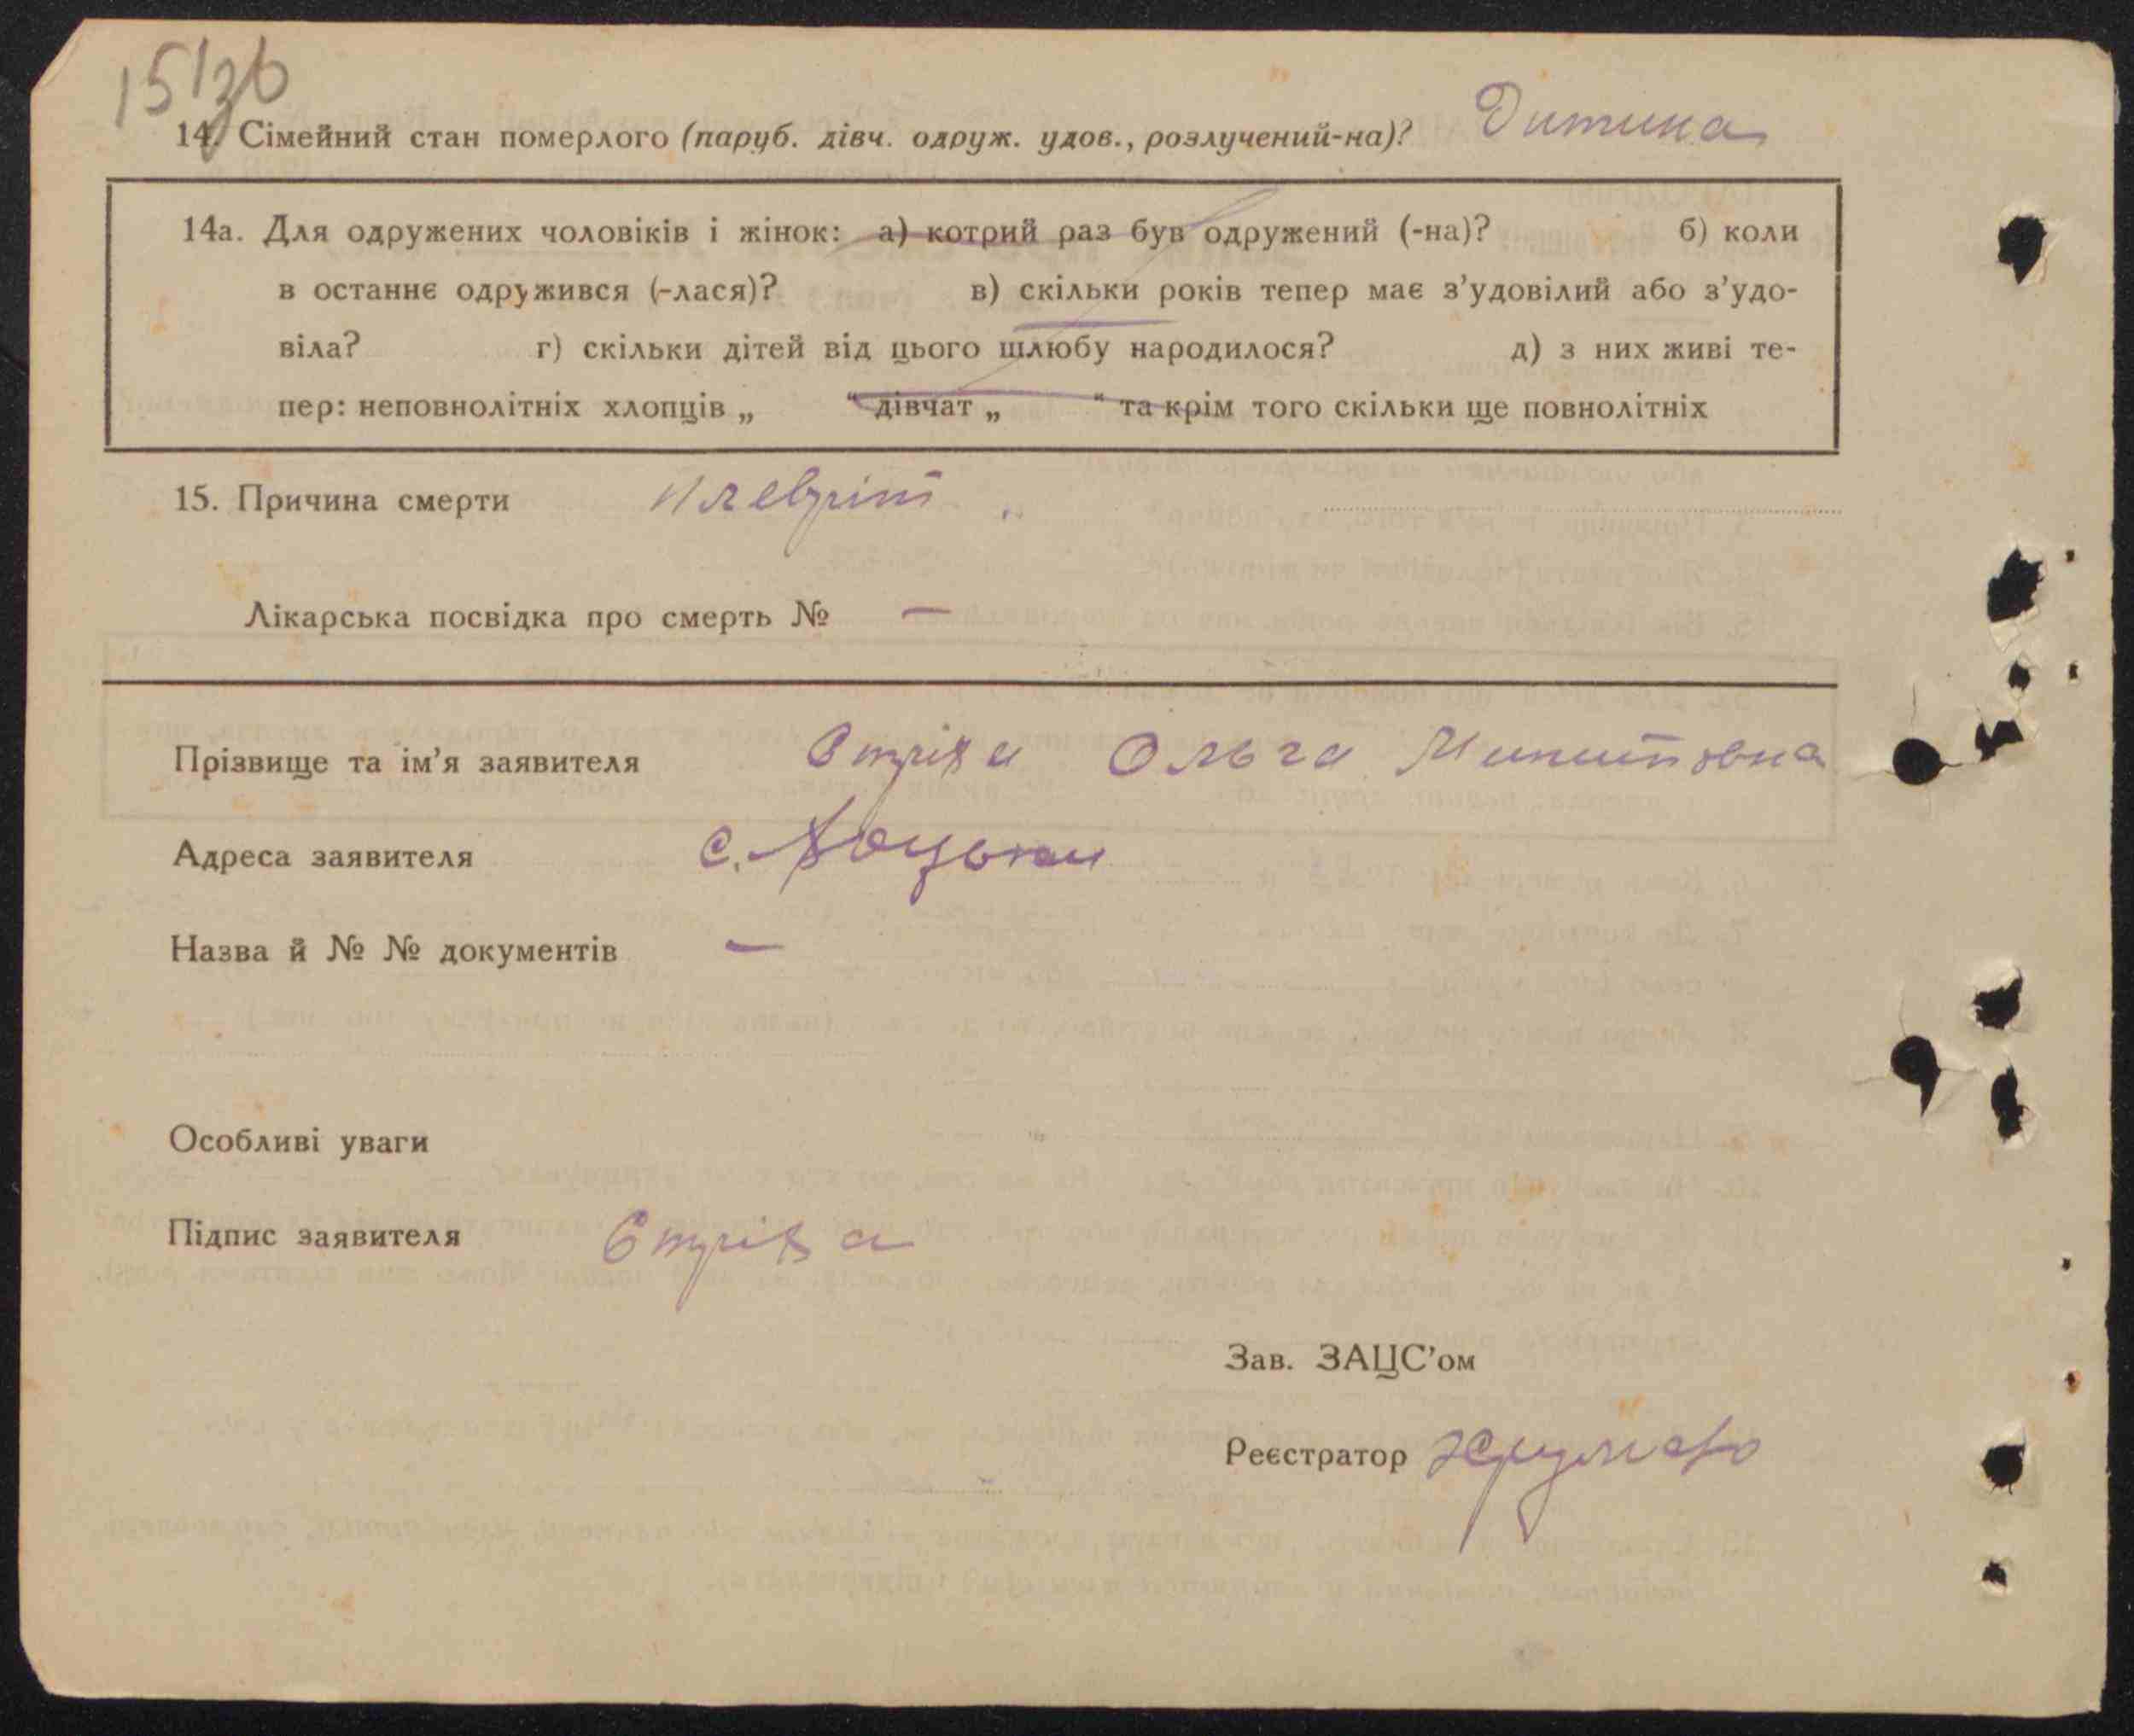 15/зв
14. Сімейний стан померлого (паруб. дівч. одруж. удов., розлучений-на)? Дитина
14а. Для одружених чоловіків і жінок: а) котрий раз був одружений (-на)? б) коли
в останнє одружився (-лася)? в) скільки років тепер має з’удовілий або з’удо-
віла? г) скільки дітей від цього шлюбу народилося? д) з них живі те-
пер: неповнолітніх хлопців „ “ дівчат „ “ та крім того скільки ще повнолітніх
15. Причина смерти Плевріт
Лікарська посвідка про смерть № —
Прізвище та ім’я заявителя Стріха Ольга Микитовна
Адреса заявителя с. Хоцьки
Назва й № № документів —
Особливі уваги
Підпис заявителя Стріха
Зав. ЗАЦС’ом
Реєстратор